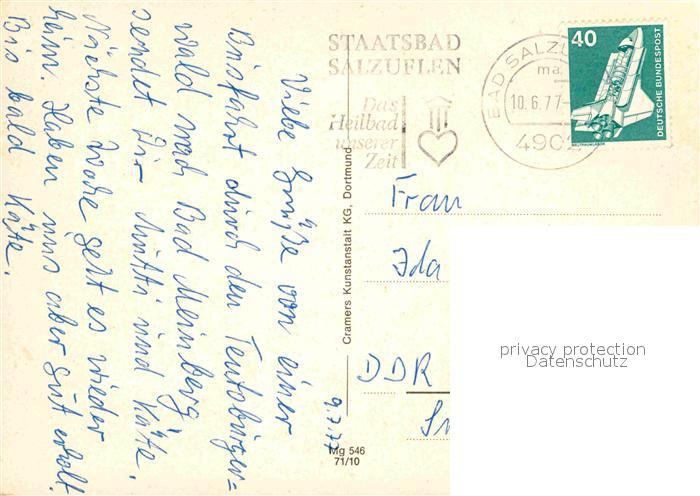 Viele Grüße von einer
Busfahrt durch den Teutoburger=
wald nach Bad Meinberg
sendet Dir Mutti und Käte.
Nächste Woche geht es wieder
heim. Haben uns aber gut erholt.
Bis bald Käte.
9.7.77
STAATSBAD
SALZUFLEN
Das
Heilbad
unserer
Zeit
BAD SALZU
ma
10.6.77-
4902
40
DEUTSCHE BUNDESPOST
WELTRAUMLABOR
Cramers Kunstanstalt KG, Dortmund
Mg 546
71/10
Frau
Ida
DDR
privacy protection
Datenschutz